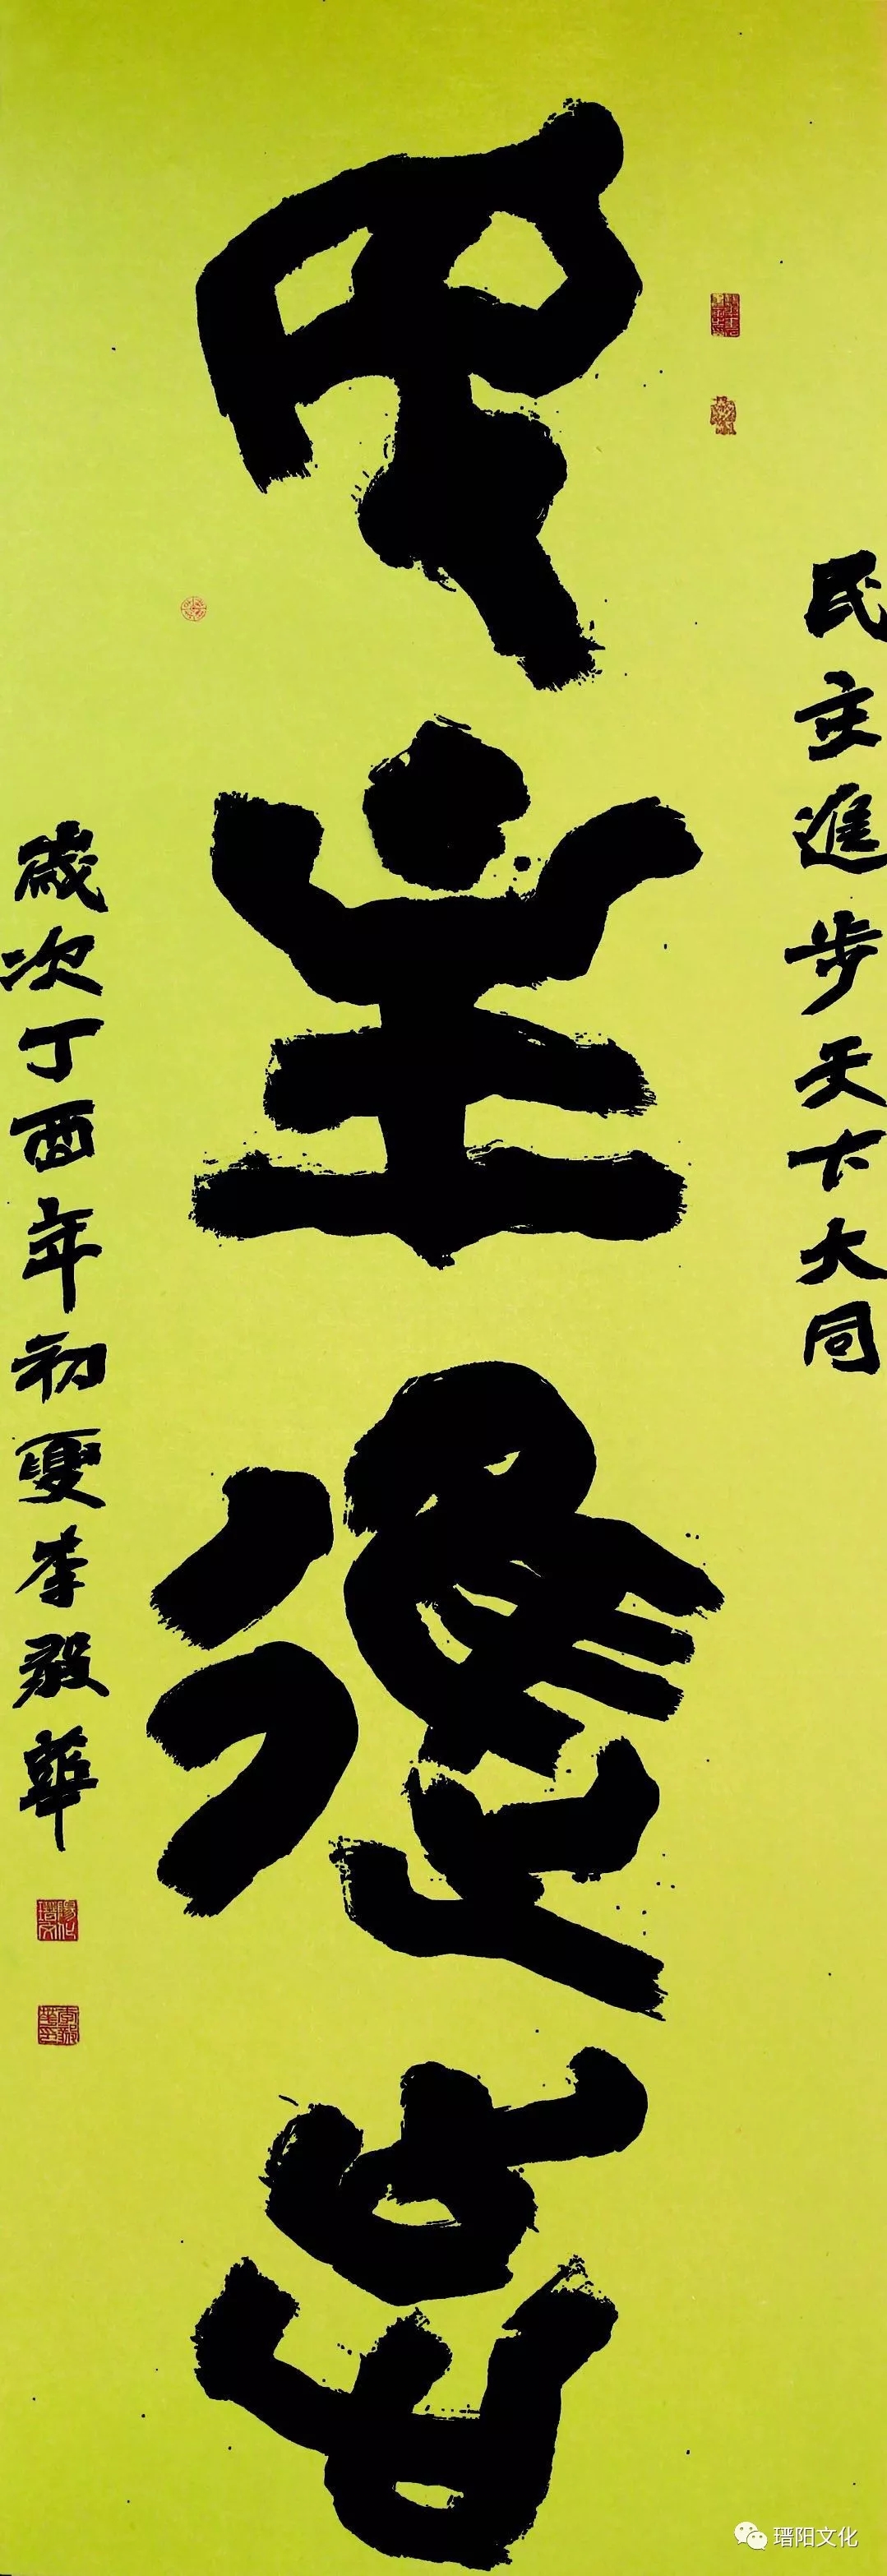 民主進步天下大同
民主進步
歲次丁酉年初夏李毅華
瑨阳文化